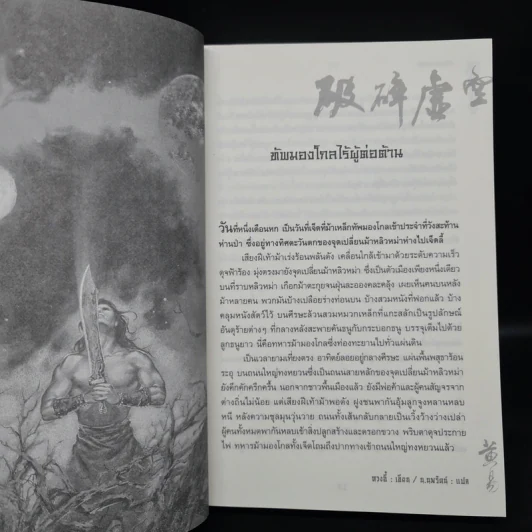 破碎虛空
ทัพมองโกลไร้ผู้ต่อต้าน
วันที่หนึ่งเดือนหก เป็นวันที่เจ็ดที่ม้าเหล็กทัพมองโกลเข้าประจำที่วังสะท้าน
ท่านป่า ซึ่งอยู่ทางทิศตะวันตกของจุดเปลี่ยนม้าหลิวหม่าห่างไปเจ็ดลี้
เสียงฝีเท้าม้าเร่งร้อนพลันดัง เคลื่อนใกล้เข้ามาด้วยระดับความเร็ว
ดุจฟ้าร้อง มุ่งตรงมายังจุดเปลี่ยนม้าหลิวหม่า ซึ่งเป็นตัวเมืองเพียงหนึ่งเดียว
บนที่ราบหลิวหม่า เกือกม้าตะกุยจนฝุ่นละอองคละคลุ้ง เผยเห็นคนบนหลัง
ม้าหลายคน พวกมันบ้างเปลือยร่างท่อนบน บ้างสวมหนังที่ฟอกแล้ว บ้าง
คลุมหนังสัตว์ไว้ บนศีรษะล้วนสวมหมวกเหล็กที่แกะสลักเป็นรูปลักษณ์
อันดุร้ายต่างๆ ที่กลางหลังสะพายคันธนูกับกระบอกธนู บรรจุเต็มไปด้วย
ลูกธนูยาว นี่คือทหารม้ามองโกลซึ่งท่องทะยานไปทั่วแผ่นดิน
เป็นเวลายามเที่ยงตรง อาทิตย์ลอยอยู่กลางศีรษะ แผ่นพื้นพสุธาร้อน
ระอุ บนถนนใหญ่ทงหยวนซึ่งเป็นถนนสายหลักของจุดเปลี่ยนม้าหลิวหม่า
ยังคึกคักครึกครื้น นอกจากชาวพื้นเมืองแล้ว ยังมีพ่อค้าและผู้คนสัญจรจาก
ต่างถิ่นไม่น้อย แต่เสียงฝีเท้าม้าพอดัง ฝูงชนพากันอุ้มลูกจูงหลานหลบ
หนี หลังความชุลมุนวุ่นวาย ถนนทั้งเส้นกลับกลายเป็นเวิ้งว้างว่างเปล่า
ผู้คนทั้งหมดพากันหลบเข้าสิ่งปลูกสร้างและตรอกขวาง พริบตาดุจประกาย
ไฟ ทหารม้ามองโกลทั้งเจ็ดโถมถึงปากทางเข้าถนนใหญ่ทงหยวนแล้ว
หวงอี้ : เขียน / น.นพรัตน์ : แปล